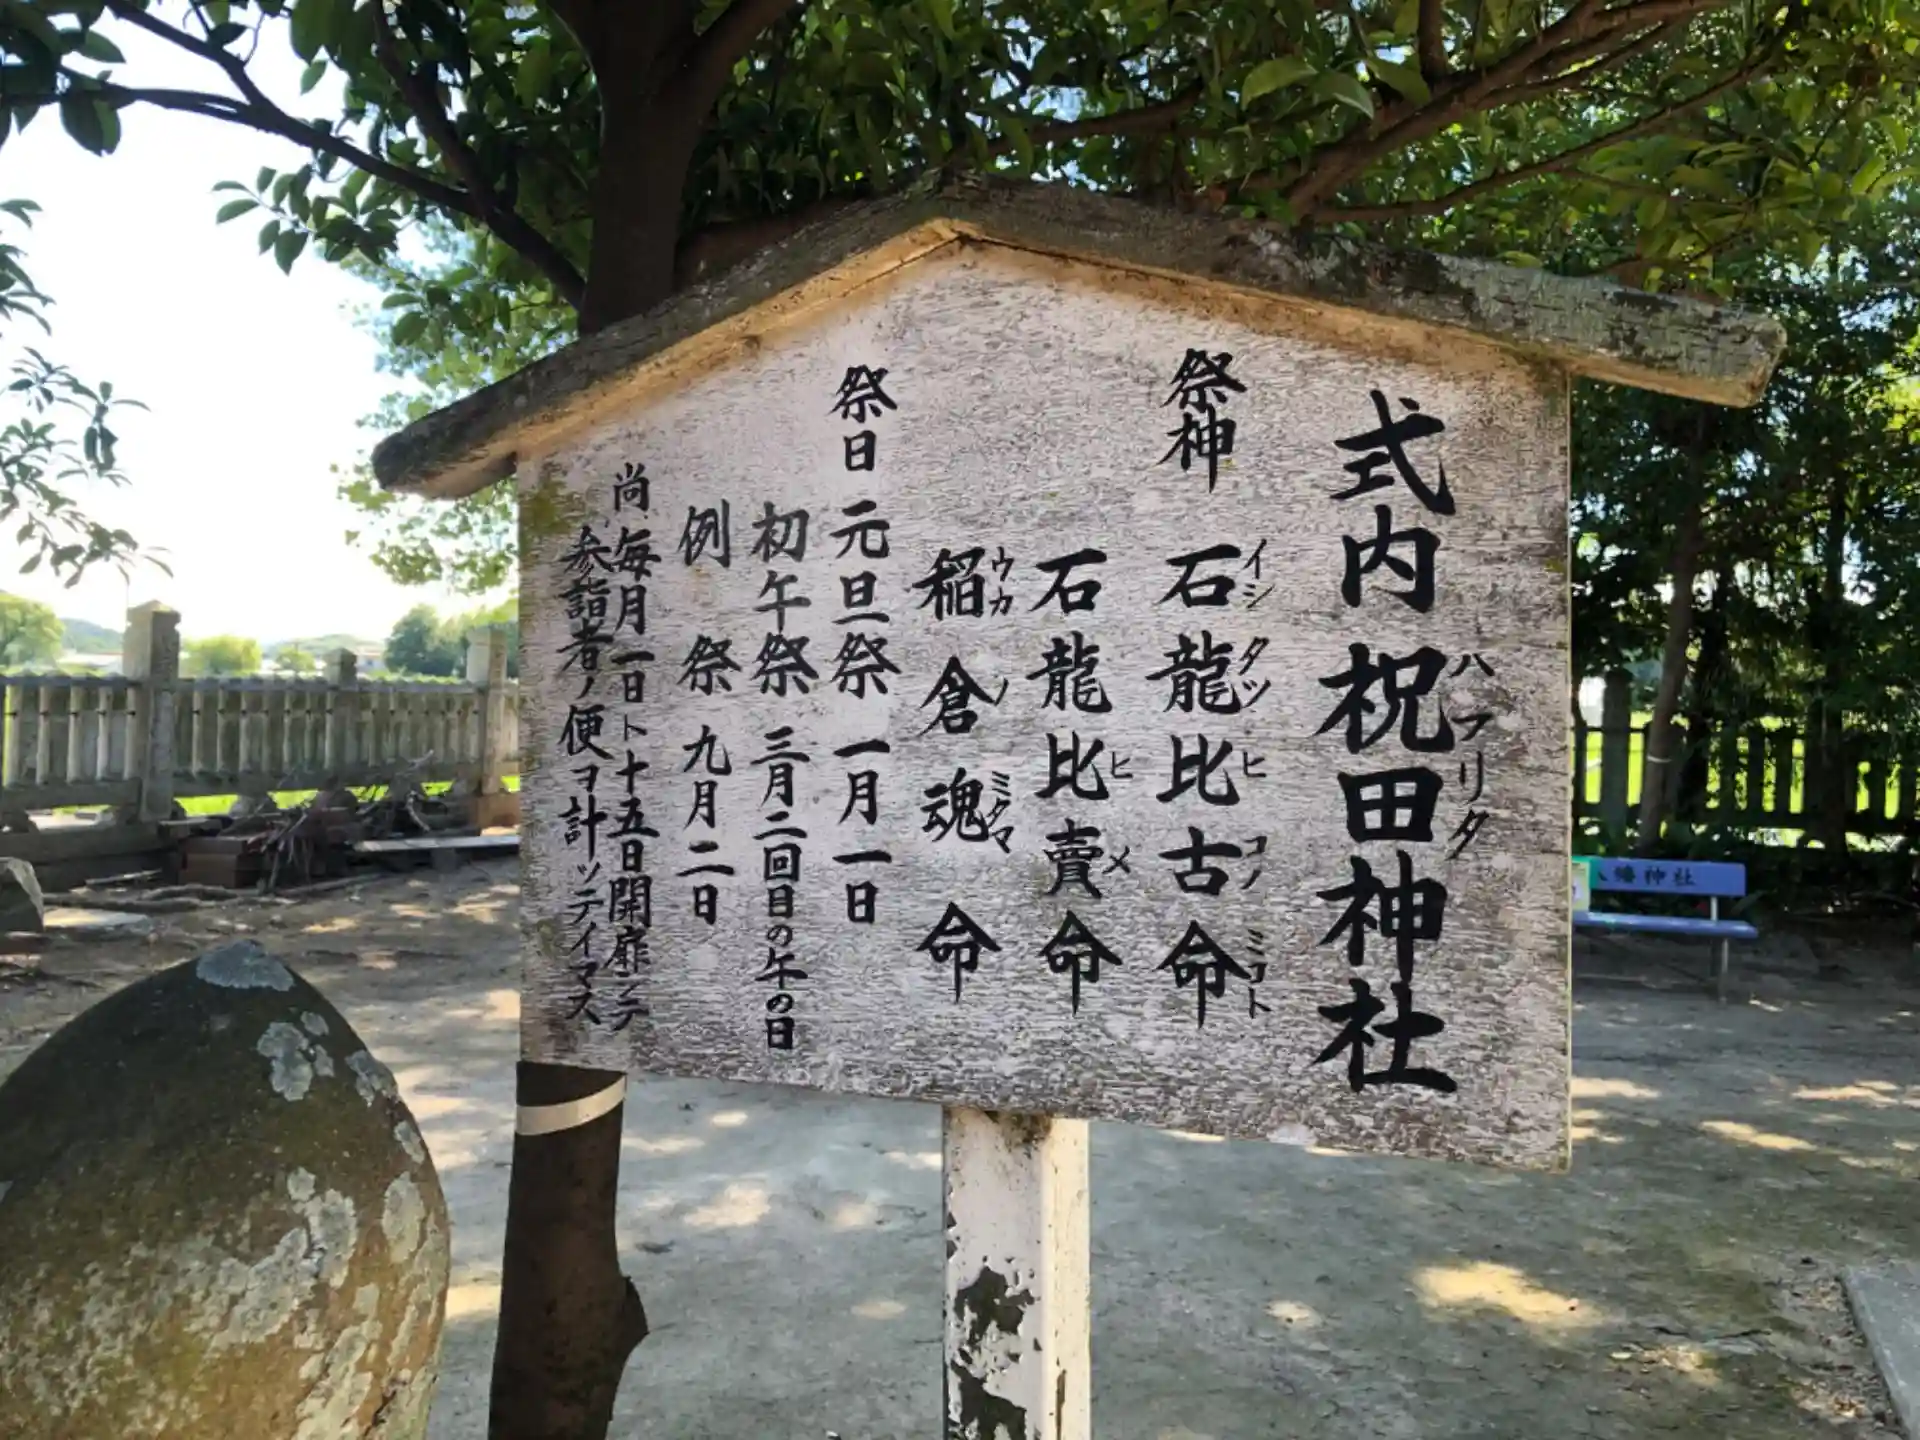 式内 祝田神社
ハフリタ
祭神 石龍比古命
イシ タツ ヒ コノ ミコト
石龍比賣命
ヒ メ
稲倉魂命
ウカ ノ ミタマ
祭日 元旦祭 一月一日
初午祭 三月二回目の午の日
例祭 九月二日
尚、毎月一日ト十五日開扉シテ
参詣者ノ便ヲ計ッテイマス
幡神社